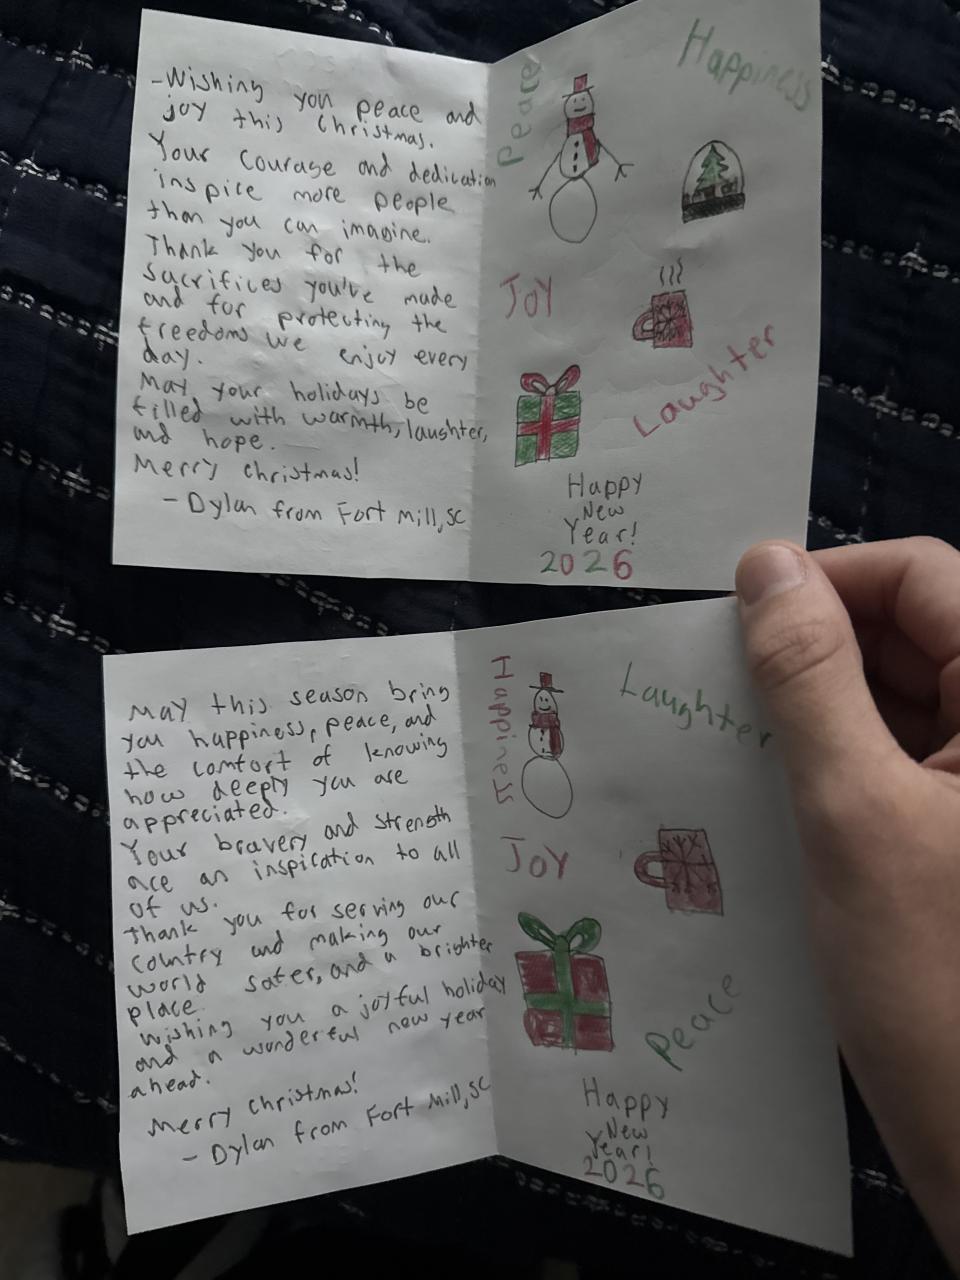 -Wishing you peace and
joy this Christmas.
Your courage and dedication
inspire more people
than you can imagine.
Thank you for the
sacrifices you've made
and for protecting the
freedoms we enjoy every
day.
May your holidays be
filled with warmth, laughter,
and hope.
Merry Christmas!
- Dylan from Fort Mill, SC
Peace
Happiness
Joy
Laughter
Happy
New
Year!
2026
May this season bring
you happiness, peace, and
the comfort of knowing
how deeply you are
appreciated.
Your bravery and strength
are an inspiration to all
of us.
Thank you for serving our
country and making our
world safer, and a brighter
place.
Wishing you a joyful holiday
and a wonderful new year
ahead.
Merry Christmas!
- Dylan from Fort Mill, SC
Happiness
Laughter
Joy
Peace
Happy
New
Year!
2026